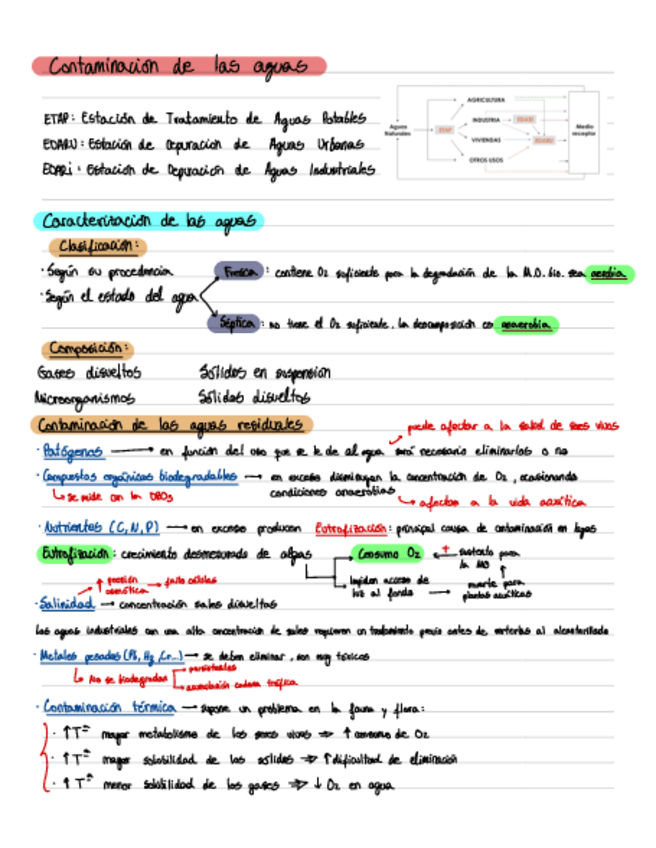 Contaminación de las aguas
ETAP: Estación de Tratamiento de Aguas Potables
EDARU: Estación de Depuración de Aguas Urbanas
EDARi: Estación de Depuración de Aguas Industriales
Aguas Naturales
ETAP
AGRICULTURA
INDUSTRIA
EDARI
VIVIENDAS
EDARU
OTROS USOS
Medio receptor
Caracterización de las aguas
Clasificación:
· Según su procedencia
· Según el estado del agua
Fresca: contiene O2 suficiente para la degradación de la M.O. bio. sea aerobia
Séptica: no tiene el O2 suficiente, la descomposición es anaerobia
Composición:
Gases disueltos Sólidos en suspensión
Microorganismos Sólidos disueltos
Contaminación de las aguas residuales
puede afectar a la salud de seres vivos
· Patógenos → en función del uso que se le de al agua será necesario eliminarlos o no
· Compuestos orgánicos biodegradables → en exceso disminuyen la concentración de O2, ocasionando
condiciones anaerobias
↳ se mide con la DBO5
↳ afectan a la vida acuática
· Nutrientes (C, N, P) → en exceso producen Eutrofización: principal causa de contaminación en lagos
Eutrofización: crecimiento desmesurado de algas
Consumo O2
+ sustrato para la MO
Impiden acceso de luz al fondo → muerte para plantas acuáticas
↑ presión osmótica → fallo células
· Salinidad → concentración sales disueltas
Las aguas industriales con una alta concentración de sales requieren un tratamiento previo antes de verterlas al alcantarillado
· Metales pesados (Pb, Hg, Cr...) → se deben eliminar, son muy tóxicos
↳ No se biodegradan
persistentes
acumulación cadena trófica
· Contaminación térmica → supone un problema en la fauna y flora:
· ↑ Tª mayor metabolismo de los seres vivos ⇒ ↑ consumo de O2
· ↑ Tª mayor solubilidad de los sólidos ⇒ ↑ dificultad de eliminación
· ↑ Tª menor solubilidad de los gases ⇒ ↓ O2 en agua